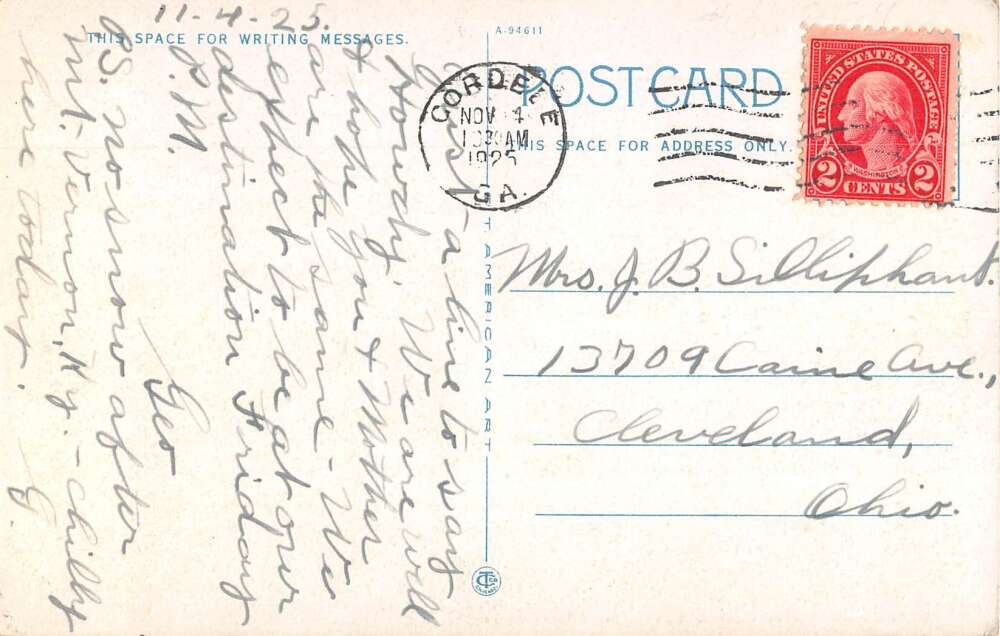 11-4-25.
THIS SPACE FOR WRITING MESSAGES.
Just - a line to say
Howdy. We are well
& hope you & Mother
are the same - We
expect to be at our
destination Friday
P.M.
Geo
PS. no snow after
Mt. Vernon, Ky. - chilly
here today.
G.
A-94611
POST CARD
THIS SPACE FOR ADDRESS ONLY.
CORDELE
NOV 4
1030AM
1925
GA.
UNITED STATES POSTAGE
WASHINGTON
2 CENTS 2
Mrs. J. B. Silliphant.
13709 Caine Ave.,
Cleveland,
Ohio.
T AMERICAN ART
CT CO
CHICAGO